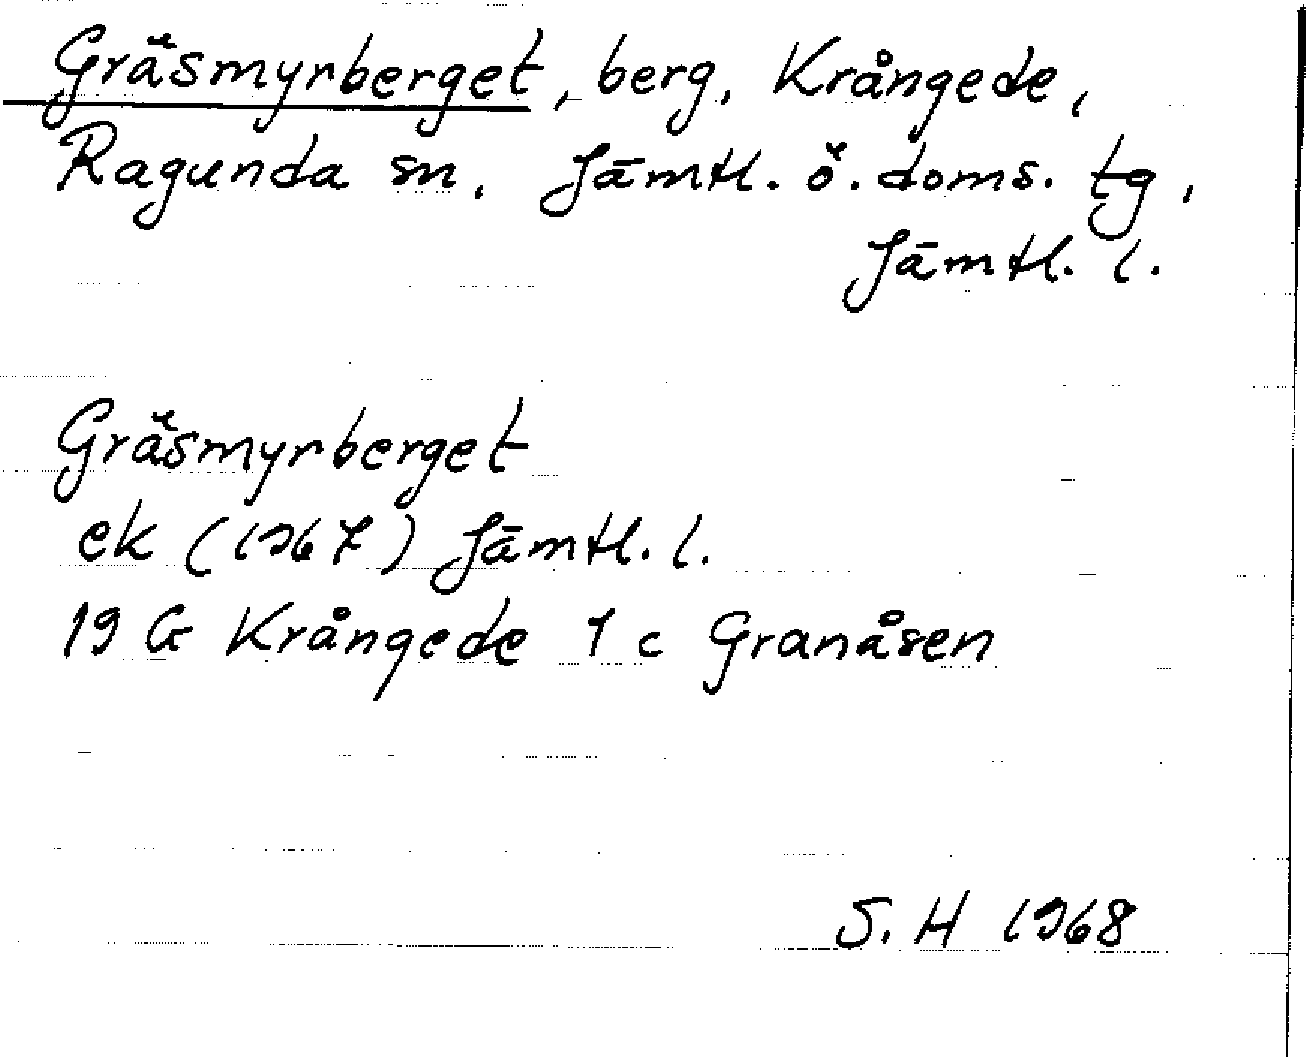 Gräsmyrberget, berg, Krångede,
Ragunda sn, Jämtl. ö. doms. tg,
Jämtl. l.
Gräsmyrberget
ek (1967) Jämtl. l.
19 G Krångede 1 c Granåsen
S. H 1968